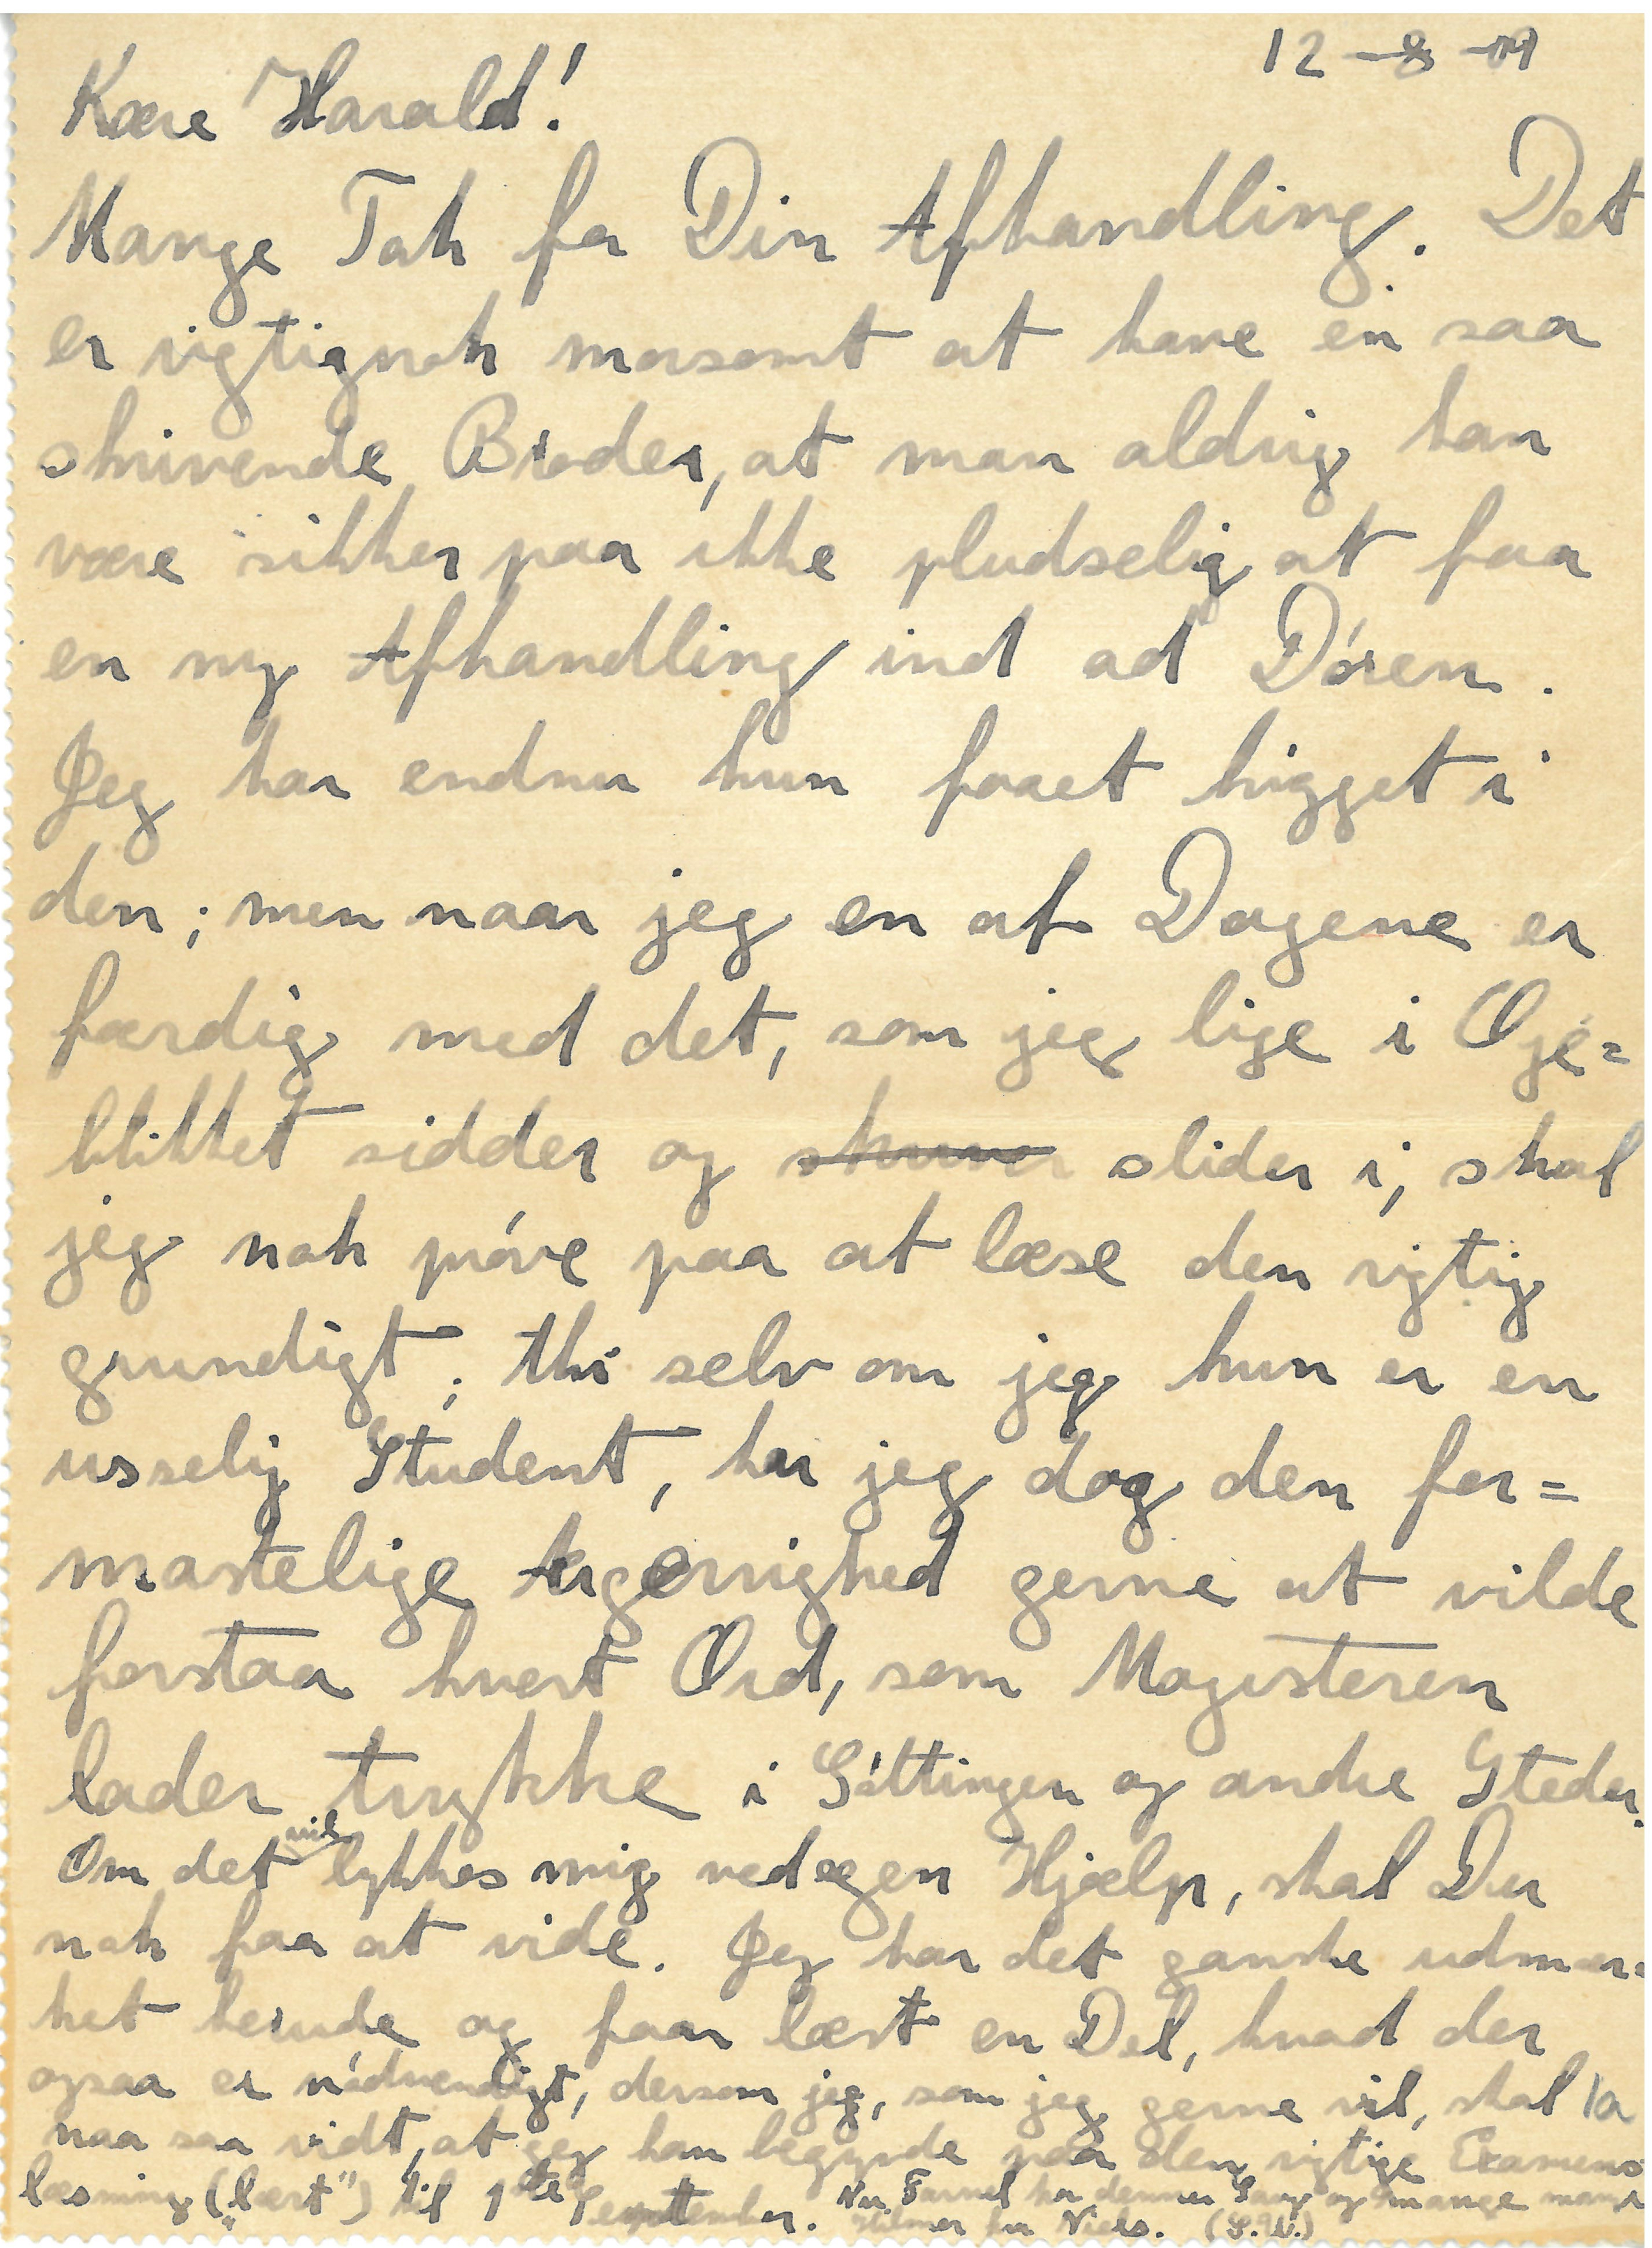 12-8-09
Kære Harald!
Mange Tak for Din Afhandling. Det
er rigtignok morsomt at have en saa
skrivende Broder, at man aldrig kan
være sikker paa ikke pludselig at faa
en ny Afhandling ind ad Døren.
Jeg har endnu kun faaet kigget i
den; men naar jeg en af Dagene er
færdig med det, som jeg lige i Øje=
blikket sidder og slider i, skal
jeg nok prøve paa at læse den rigtig
grundigt; thi selv om jeg kun er en
usselig Student, har jeg dog den for=
mastelige Ærgerrighed gerne at vilde
forstaa hvert Ord, som Magisteren
lader trykke i Göttingen og andre Steder.
Om det vil lykkes mig ved egen Hjælp, skal Du
nok faa at vide. Jeg har det ganske udmær=
ket herude og faar læst en Del, hvad der
ogsaa er nødvendigt, dersom jeg, som jeg gerne vil, skal
naa saa vidt, at jeg kan begynde paa den rigtige Examens
læsning („læst") til 1ste September. Nu Farvel for denne Gang og mange mange
Hilsner fra Niels. (S. U.)
1a